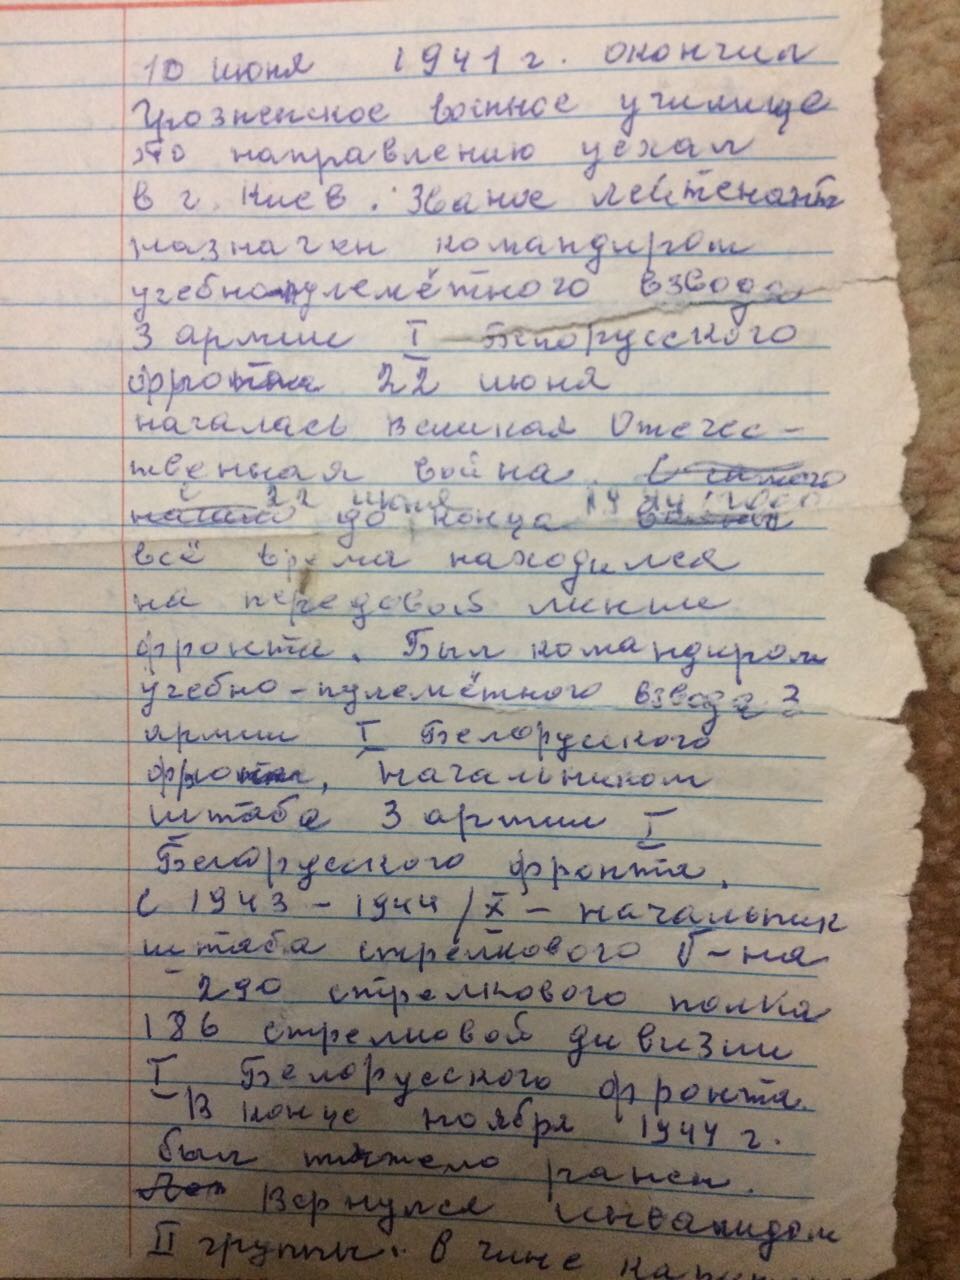 10 июня 1941 г. окончил
Грозненское военное училище
По направлению уехал
в г. Киев. Звание лейтенант
назначен командиром
учебно-пулемётного взвода
3 армии I Белорусского
фронта 22 июня
началась Великая Отечес-
твенная война.
с 22 июня
до конца
всё время находился
на передовой линии
фронта. Был командиром
учебно-пулемётного взвода 3
армии I Белорусского
фронта, начальником
штаба 3 армии I
Белорусского фронта.
С 1943 - 1944/X - начальник
штаба стрелкового б-на
290 стрелкового полка
186 стрелковой дивизии
I Белорусского фронта.
В конце ноября 1944 г.
был тяжело ранен.
Вернулся инвалидом
II группы. в чине